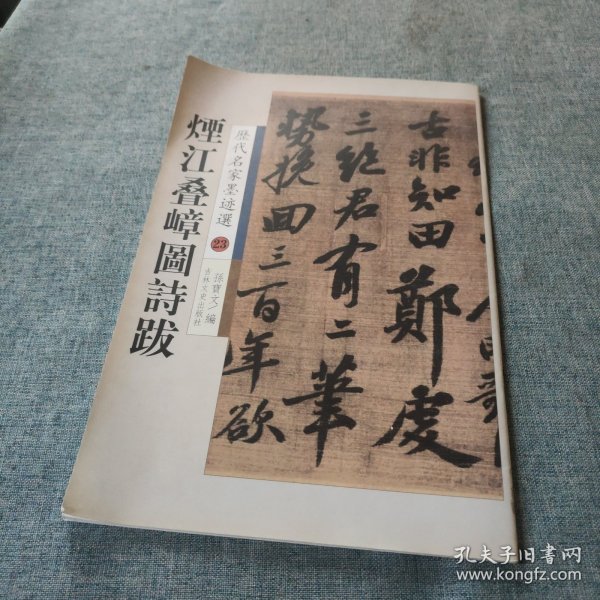 煙江叠嶂圖詩跋
歷代名家墨迹選
23
孫寶文/編
吉林文史出版社
古非知田鄭虔
三絶君有二筆
勢挽回三百年欲
孔夫子旧书网
www.kongfz.com